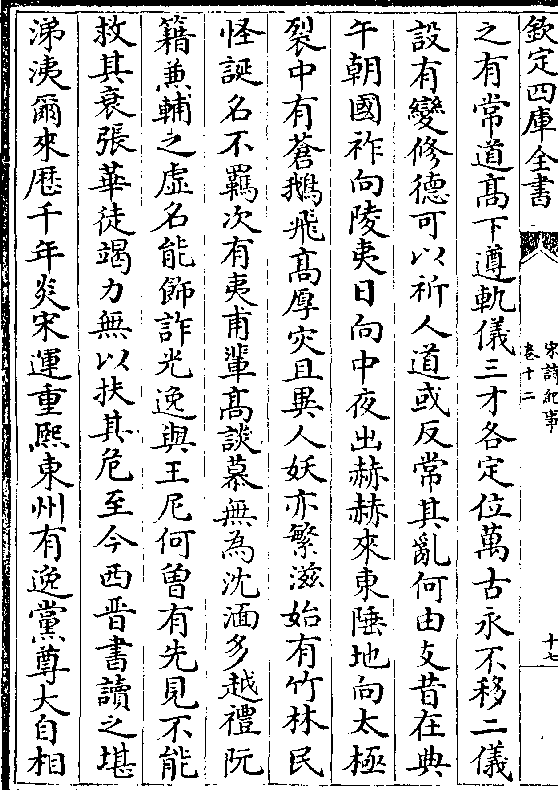 欽定四庫全書
宋詩紀事
卷十二
十七
之有常道髙下遵軌儀三才各定位萬古永不移二儀
設有變修德可以祈人道或反常其亂何由支昔在典
午朝國祚向陵夷日向中夜出赫赫來東陲地向太極
裂中有蒼鵝飛髙厚灾且異人妖亦繁滋始有竹林民
怪誕名不羈次有夷甫輩髙談慕無為沈湎多越禮阮
籍兼輔之虚名能飾詐光逸與王尼何曾有先見不能
救其衰張華徒竭力無以扶其危至今西晉書讀之堪
涕洟爾來歴千年炎宋運重熙東州有逸黨尊大自相